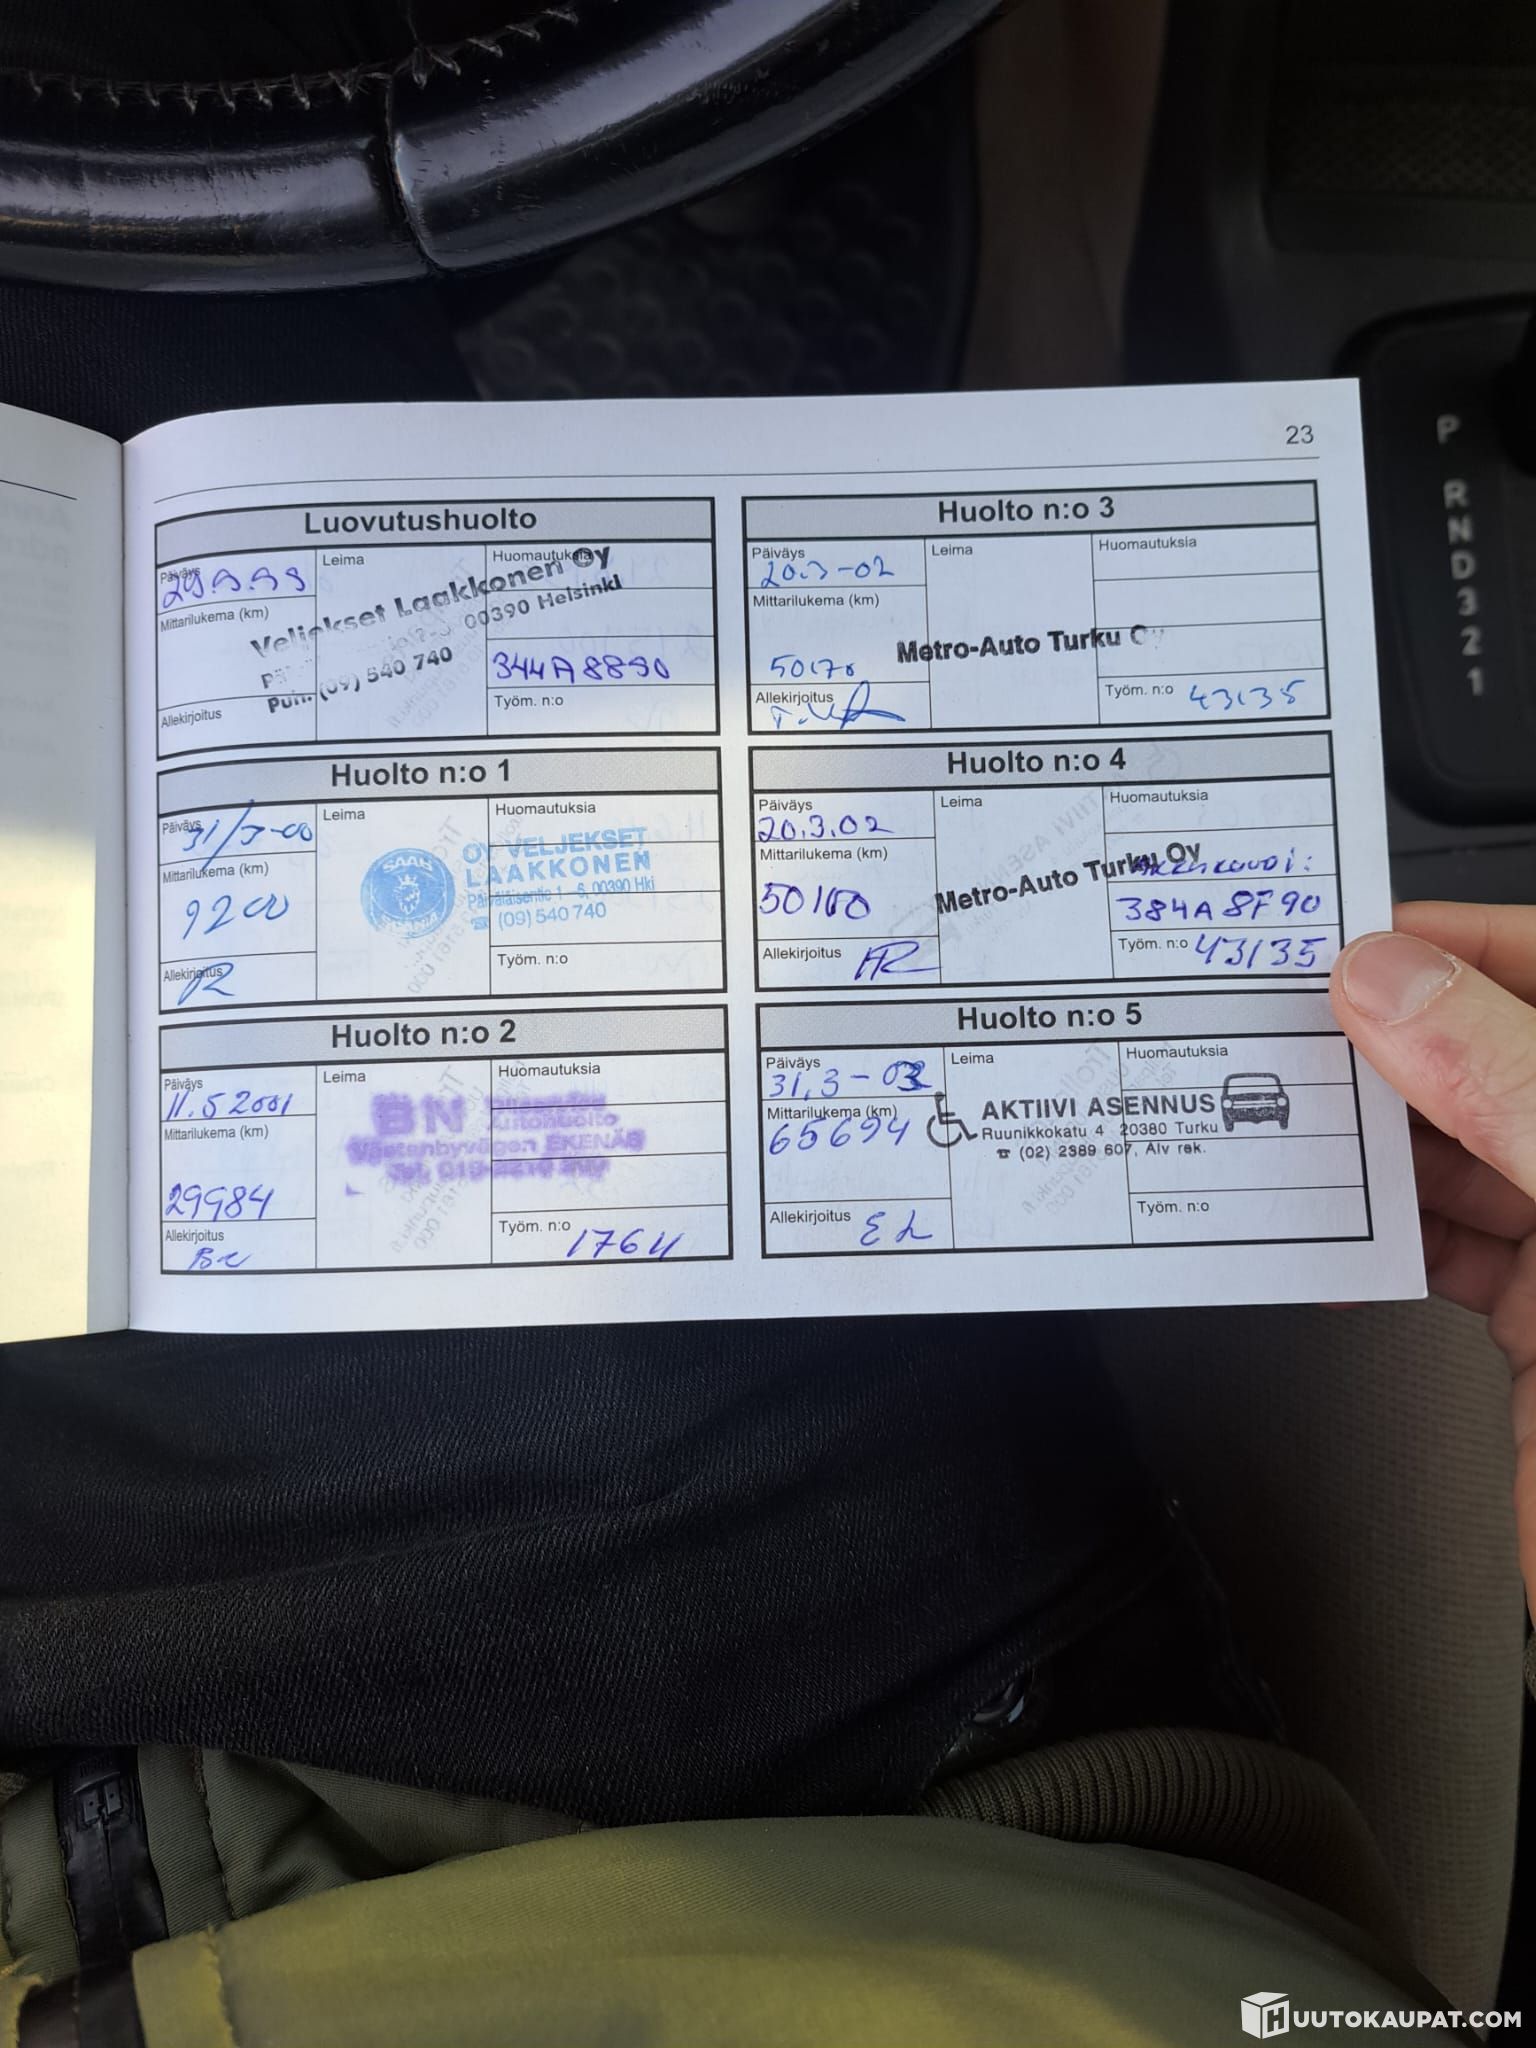 23
Luovutushuolto
Päiväys
29.9.99
Leima
Huomautuksia
Mittarilukema (km)
Veljekset Laakkonen Oy
00390 Helsinki
Puh. (09) 540 740
344A8890
Allekirjoitus
Työm. n:o
Huolto n:o 1
Päiväys
31/3-00
Leima
Huomautuksia
Mittarilukema (km)
9200
SAAB
OY VELJEKSET
LAAKKONEN
Päiväläisentie 1-6, 00390 Hki
☎ (09) 540 740
Allekirjoitus
Työm. n:o
Huolto n:o 2
Päiväys
11.5 2001
Leima
Huomautuksia
Mittarilukema (km)
BN
Autohuolto
Västanbyvägen EKENÄS
29984
Allekirjoitus
Työm. n:o
1764
Huolto n:o 3
Päiväys
20.3-02
Leima
Huomautuksia
Mittarilukema (km)
Metro-Auto Turku Oy
Allekirjoitus
Työm. n:o 43135
Huolto n:o 4
Päiväys
20.3.02
Leima
Huomautuksia
Mittarilukema (km)
Metro-Auto Turku Oy
384A8F90
Allekirjoitus
Työm. n:o 43135
Huolto n:o 5
Päiväys
31.3-03
Leima
Huomautuksia
Mittarilukema (km)
65694
AKTIIVI ASENNUS
Ruunikkokatu 4 20380 Turku
☎ (02) 2389 607, Alv rek.
Allekirjoitus
EL
Työm. n:o
P
R
N
D
3
2
1
HUUTOKAUPAT.COM